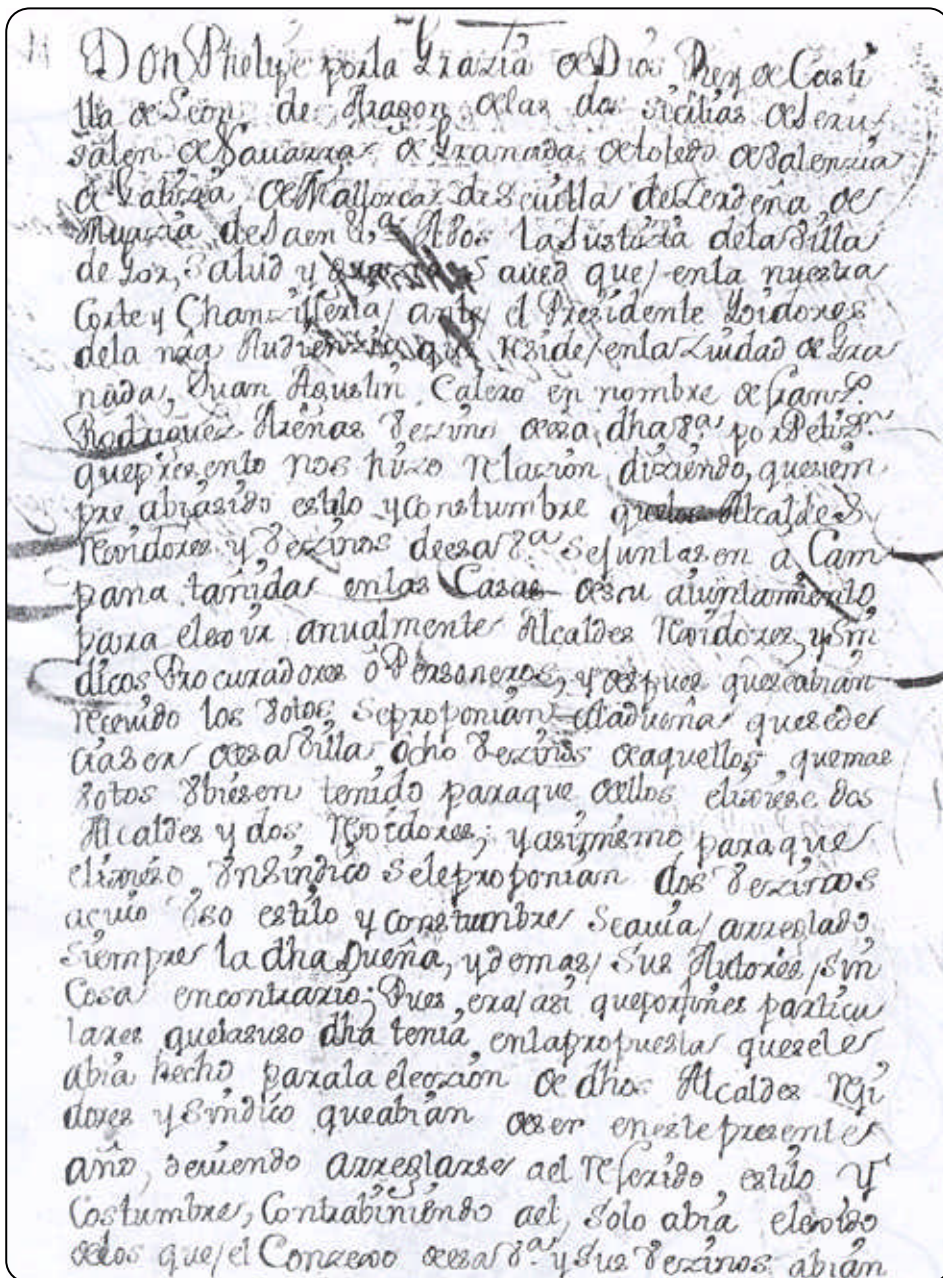 Don Phelipe por la Grazia de Dios Rey de Casti
lla de Leon, de Aragon de las dos Sicilias de Jeru
salen de Nauarra de Granada de toledo de Valenzia
de Galizia de Mallorca de Seuilla de Zerdeña de
Murzia de Jaen &.ª A vos la Justizia dela Villa
de Jor, Salud y Grazia Saued que enla nuestra
Corte y Chanzilleria ante el Presidente y oidores
dela nrã Audienzia que Reside enla Ziudad de Gra
nada, Juan Agustin Calero en nombre de Fran.co
Rodriguez Arenas Vezino de esa dha V.ª por Petiz.on
que presento nos hizo Relazion diziendo, que siem
pre abia sido estilo y constumbre que los Alcaldes
Rexidores y Vezinos de esa V.ª se juntasen a Cam
pana tañida en las Casas de su aiuntamiento
para elexir anualmente Alcaldes Rexidores, y Sin
dicos Procuradores ó Personeros, y despues que se abian
receuido los Votos se proponian a la dueña que se de
cia ser de esa Villa ocho Vezinos de aquellos que mas
Votos Vbiesen tenido para que de ellos elixiese dos
Alcaldes y dos Rexidores; y asimismo para que
elixiese Vn Sindico se le proponian dos Vezinos
a cuio Vso estilo y constumbre se auia arreglado
Siempre la dha Dueña, y demas Sus Autores Sin
Cosa en contrario; Pues era asi que por fines particu
lares que la suso dha tenia en la propuesta que se le
abia hecho para la eleczion de dhos Alcaldes Regi
dores y Sindico que abian de ser en este presente
año, deuiendo arreglarse a el Referido estilo y
Costumbre, Contrabiniendo a el, Solo abia elexido
de los que el Conzexo de esa V.ª y Sus Vezinos abian